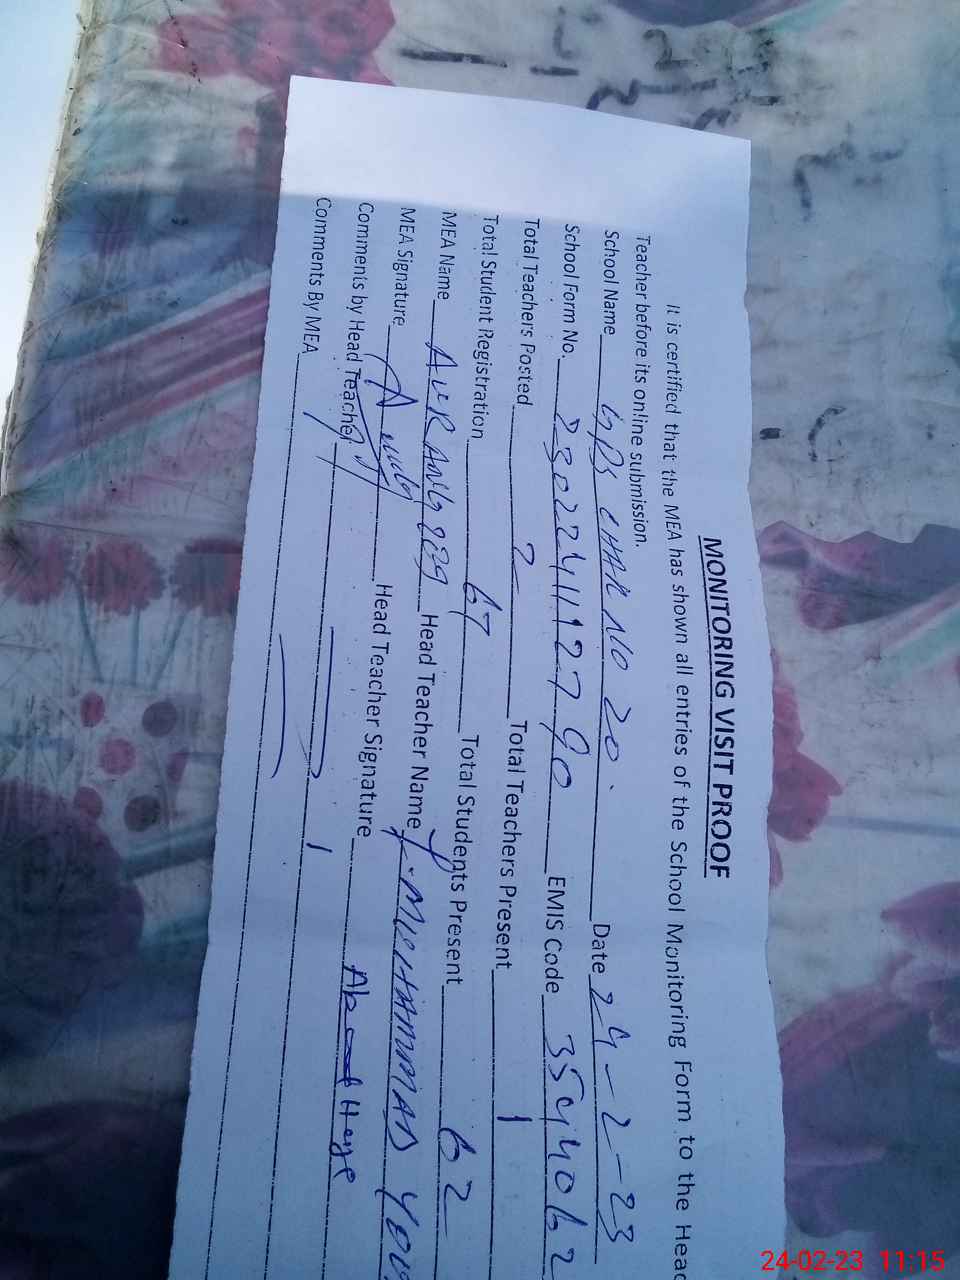 MONITORING VISIT PROOF
It is certified that the MEA has shown all entries of the School Monitoring Form to the Head
Teacher before its online submission.
School Name GPS CHAK NO 20. Date 24-2-23
School Form No. 230224112790 EMIS Code 3544062
Total Teachers Posted 2 Total Teachers Present 1
Total Student Registration 67 Total Students Present 62
MEA Name AURANGZEB Head Teacher Name MUHAMMAD
MEA Signature Head Teacher Signature
Comments by Head Teacher
Comments By MEA
24-02-23 11:15